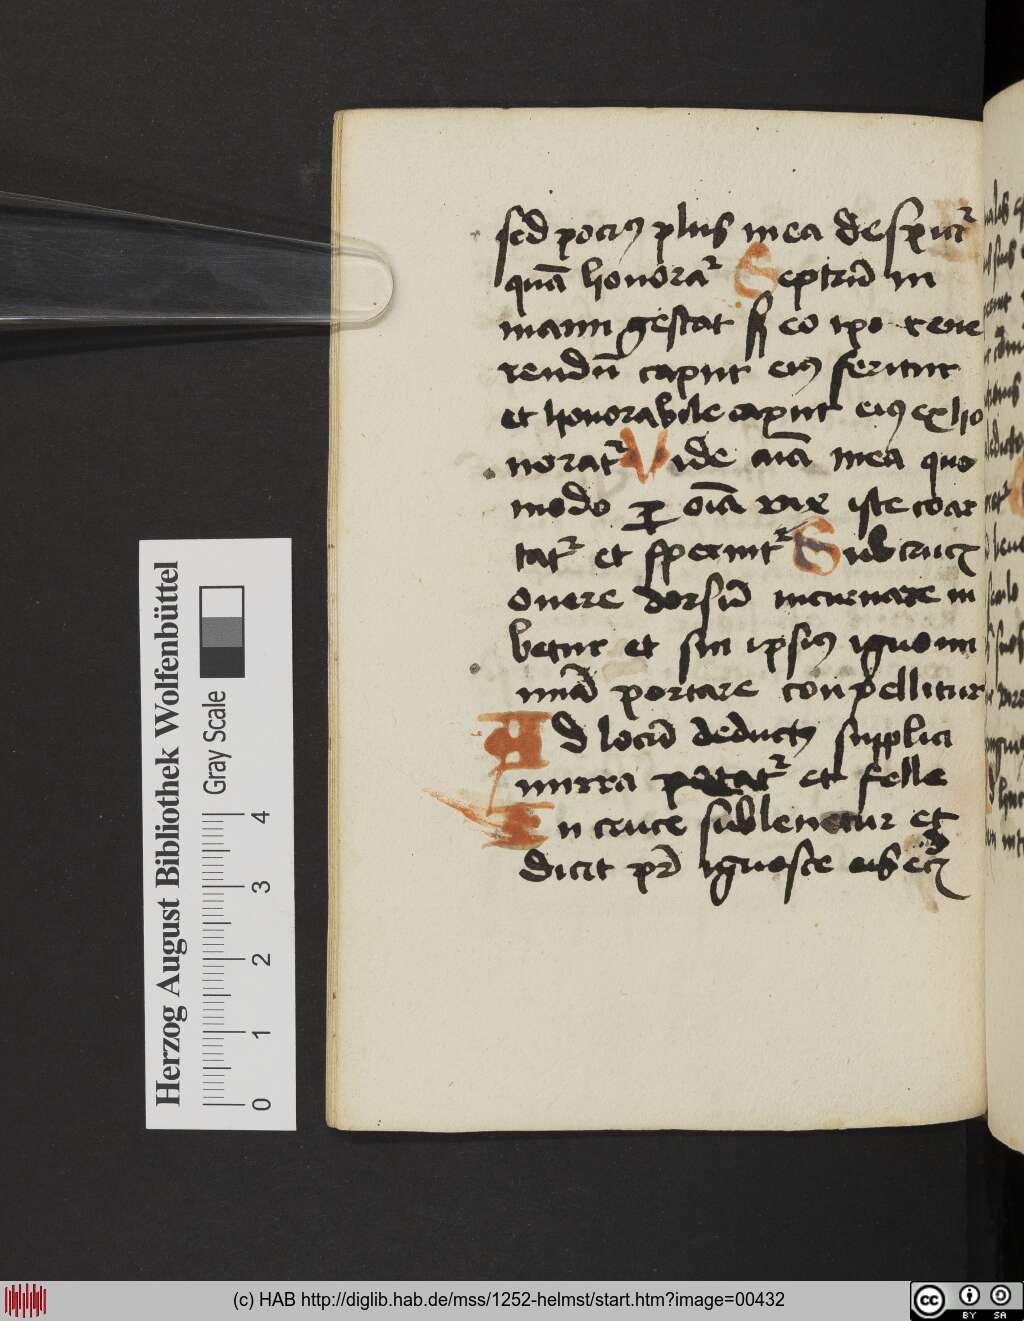 sed pociꝰ plus mea despicit᷑
quā honorat᷑ Septrū in
manu gestat sꝫ eo ipo reue
rendū caput eiꝰ feritur
et honorabile caput eiꝰ exho
norat᷑ Vide aīa mea quo
modo ꝑ oīa rex iste coar
tat᷑ et spernit᷑ Sub crucꝭ
onere dorsū incuruare iu
betur et sui ipsiꝰ ignomi
niā portare conpellitur
Ad locū deductꝰ supplicii
mirra potat᷑ et felle
In cruce subleuatur et
dicit pr̄ ignosce eis ecꝫ
Herzog August Bibliothek Wolfenbüttel
Gray Scale
0 1 2 3 4
(c) HAB http://diglib.hab.de/mss/1252-helmst/start.htm?image=00432
cc BY SA